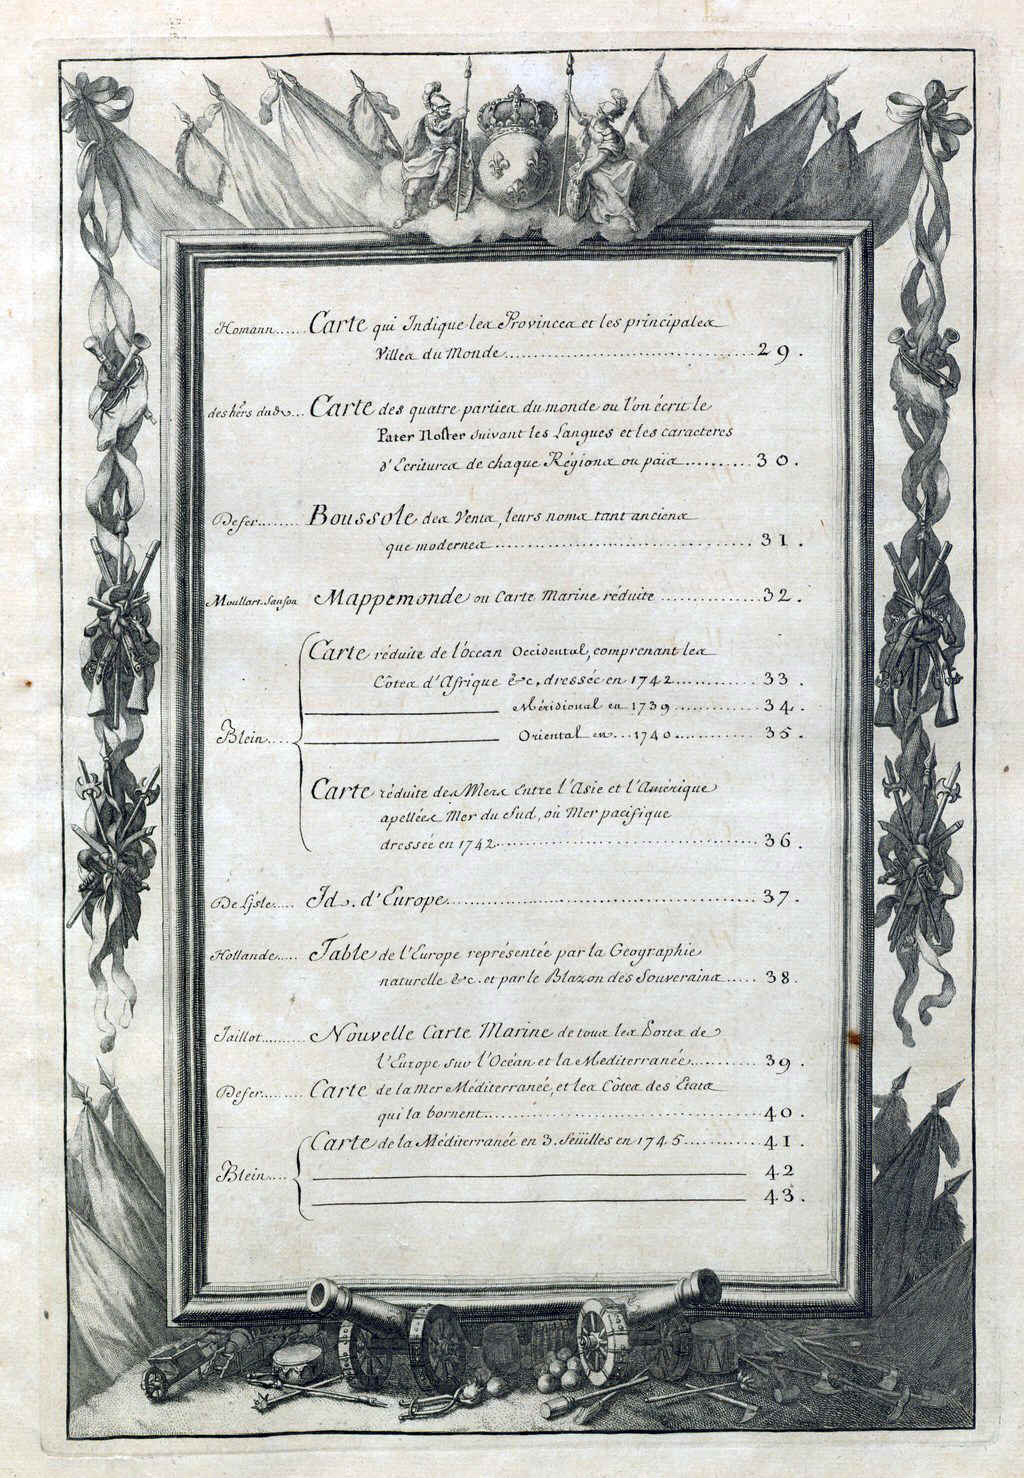 Homann...... Carte qui Indique les Provinces et les principales
Villes du Monde.......................................29.
des hérs dud... Carte des quatre parties du monde ou l'on écrit le
Pater Noster suivant les Langues et les caracteres
d'Ecritures de chaque Régions ou païs..........30.
Defer........ Boussole des Vents, leurs noms tant anciens
que modernes.......................................31.
Moullart-Sanson Mappemonde ou Carte Marine réduite..............32.
Carte réduite de l'ocean Occidental, comprenant les
Côtes d'Afrique &c. dressée en 1742............33.
Méridional en 1739.............34.
Blein.... Oriental en...1740............35.
Carte réduite des Mers entre l'Asie et l'Amérique
apellées Mer du Sud, où Mer pacifique
dressée en 1742.......................................36.
De Lisle..... Id. d'Europe.............................................37.
Hollande..... Table de l'Europe représentée par la Geographie
naturelle &c. et par le Blazon des Souverains.....38.
Jaillot.......... Nouvelle Carte Marine de tous les Ports de
l'Europe sur l'Océan et la Mediterranée..........39.
Defer......... Carte de la Mer Méditerranée, et les Côtes des Etats
qui la bornent.......................................40.
Carte de la Méditerranée en 3. feüilles en 1745...........41.
Blein.... 42
43.